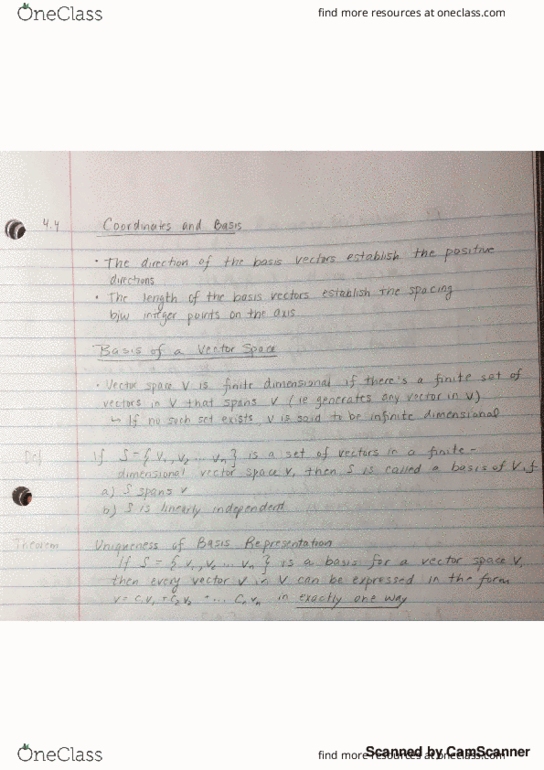 OneClass
find more resources at oneclass.com
4.4 Coordinates and Basis
• The direction of the basis vectors establish the positive
directions
• The length of the basis vectors establish the spacing
b/w integer points on the axis
Basis of a Vector Space
• Vector space V is finite dimensional if there's a finite set of
vectors in V that spans V (ie generates any vector in V)
↳ If no such set exists V is said to be infinite dimensional
Def If S = { v₁, v₂ ... vₙ } is a set of vectors in a finite-
dimensional vector space V, then S is called a basis of V if
a) S spans V
b) S is linearly independent
Theorem Uniqueness of Basis Representation
If S = { v₁, v₂ ... vₙ } is a basis for a vector space V,
then every vector v in V can be expressed in the form
v = c₁v₁ + c₂v₂ + ... cₙvₙ in exactly one way
OneClass
find more resources at oneclass.com
Scanned by CamScanner